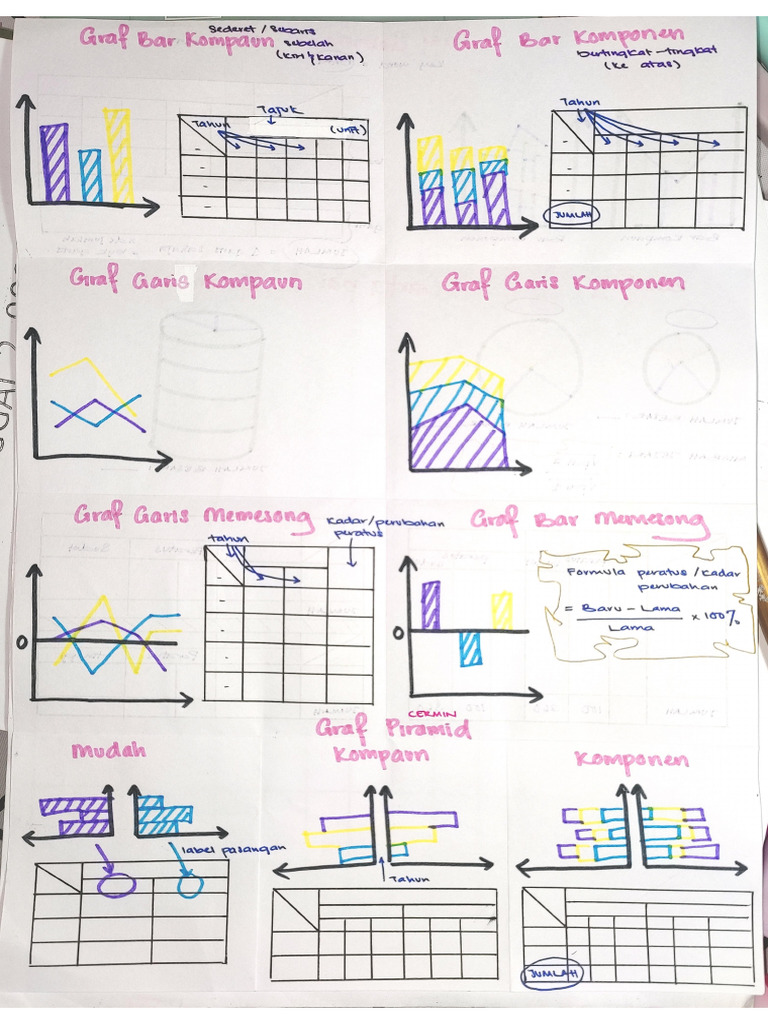 Graf Bar Kompaun
Sederet / Sebaris
sebelah
(kiri/kanan)
Graf Bar Komponen
bertingkat-tingkat
(ke atas)
Tajuk
Tahun
(unit)
Tahun
JUMLAH
Graf Garis Kompaun
Graf Garis Komponen
Graf Garis Memesong
Kadar/perubahan
peratus
tahun
0
Graf Bar Memesong
0
Formula peratus/kadar
perubahan
= Baru - Lama
Lama
x 100%
CERMIN
Graf Piramid
Mudah
Kompaun
Komponen
label pasangan
Tahun
JUMLAH